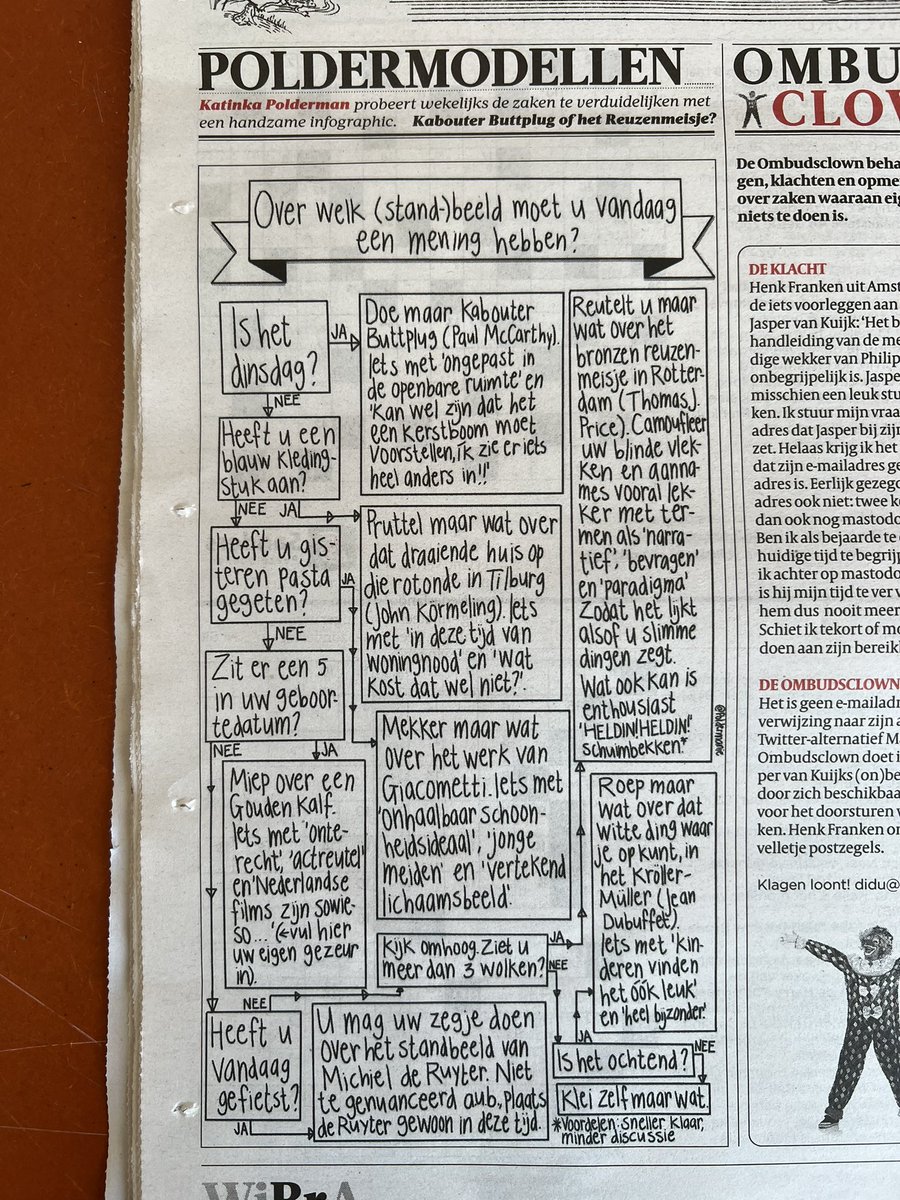 POLDERMODELLEN
Katinka Polderman probeert wekelijks de zaken te verduidelijken met
een handzame infographic. Kabouter Buttplug of het Reuzenmeisje?
Over welk (stand-)beeld moet u vandaag
een mening hebben?
Is het
dinsdag?
JA
NEE
Doe maar Kabouter
Buttplug (Paul McCarthy).
Iets met 'ongepast in
de openbare ruimte' en
'Kan wel zijn dat het
een kerstboom moet
voorstellen, ik zie er iets
heel anders in!!'
Heeft u een
blauw kleding-
stuk aan?
NEE JA
Pruttel maar wat over
dat draaiende huis op
die rotonde in Tilburg
(John Körmeling). Iets
met 'in deze tijd van
woningnood' en 'wat
kost dat wel niet?'.
Heeft u gis-
teren pasta
gegeten?
JA
NEE
Mekker maar wat
over het werk van
Giacometti. Iets met
'onhaalbaar schoon-
heidsideaal', 'jonge
meiden' en 'vertekend
lichaamsbeeld'.
Zit er een 5
in uw geboor-
tedatum?
NEE
JA
Miep over een
Gouden Kalf.
Iets met 'onte-
recht', 'actreutel'
en 'Nederlandse
films zijn sowie-
so...' (←vul hier
uw eigen gezeur
in).
Heeft u
vandaag
gefietst?
NEE
JA
U mag uw zegje doen
over het standbeeld van
Michiel de Ruyter. Niet
te genuanceerd aub, plaats
de Ruyter gewoon in deze tijd.
Kijk omhoog. Ziet u
meer dan 3 wolken?
JA
NEE
Reutelt u maar
wat over het
bronzen reuzen-
meisje in Rotter-
dam (Thomas J.
Price). Camoufleer
uw blinde vlek-
ken en aanna-
mes vooral lek-
ker met ter-
men als 'narra-
tief', 'bevragen'
en 'paradigma'
zodat het lijkt
alsof u slimme
dingen zegt.
Wat ook kan is
enthousiast
'HELDIN!HELDIN!'
schuimbekken*
Is het ochtend?
JA
NEE
Roep maar
wat over dat
witte ding waar
je op kunt, in
het Kröller-
Müller (Jean
Dubuffet).
Iets met 'kin-
deren vinden
het óók leuk'
en 'heel bijzonder.'
Klei zelf maar wat.
*Voordelen: sneller klaar,
minder discussie
OMBU
CLOW
De Ombudsclown beha
gen, klachten en opme
over zaken waaraan eig
niets te doen is.
DE KLACHT
Henk Franken uit Amst
de iets voorleggen aan
Jasper van Kuijk: 'Het b
handleiding van de me
dige wekker van Philip
onbegrijpelijk is. Jaspe
misschien een leuk stu
ken. Ik stuur mijn vraa
adres dat Jasper bij zijn
zet. Helaas krijg ik het
dat zijn e-mailadres ge
adres is. Eerlijk gezegd
adres ook niet: twee k
dan ook nog mastodo
Ben ik als bejaarde te
huidige tijd te begrijp
ik achter op mastodo
is hij mijn tijd te ver v
hem dus nooit meer
Schiet ik tekort of mo
doen aan zijn bereikl
DE OMBUDSCLOWN
Het is geen e-mailadr
verwijzing naar zijn a
Twitter-alternatief Ma
Ombudsclown doet i
per van Kuijks (on)be
door zich beschikbaa
voor het doorsturen v
ken. Henk Franken on
velletje postzegels.
Klagen loont! didu@
WiBrA